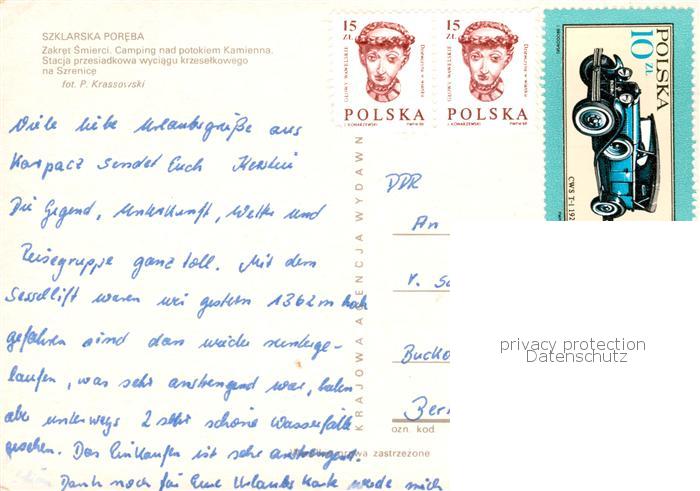 SZKLARSKA PORĘBA
Zakręt Śmierci. Camping nad potokiem Kamienna.
Stacja przesiadkowa wyciągu krzesełkowego
na Szrenicę
fot. P. Krassowski
Viele liebe Urlaubsgrüße aus
Karpacz sendet Euch Kerstin
Die Gegend, Unterkunft, Wetter und
Reisegruppe ganz toll. Mit dem
Sessellift waren wir gestern 1362 m hoch
gefahren sind dan wieder runterge-
laufen, was sehr anstrengend war, haben
aber unterwegs 2 sehr schöne Wasserfälle
gesehen. Das Einkaufen ist sehr anstrengend.
Dank noch für Eure Urlaubskarte werde mich
KRAJOWA AGENCJA WYDAWN
15 ZŁ
GŁOWY WAWELSKIE
POLSKA
J. KONARZEWSKI PWPW 86
15 ZŁ
GŁOWY WAWELSKIE
POLSKA
J. KONARZEWSKI PWPW 86
POLSKA
10 ZŁ
CWS T-1 192
DDR
An
Bucko
Ber
ozn. kod
zastrzeżone
privacy protection
Datenschutz